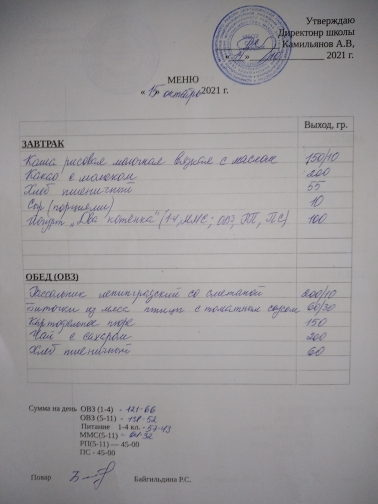 Утверждаю
Директонр школы
Камильянов А.В,
2021 г.
МЕНЮ
« 15 » октября 2021 г.
Выход, гр.
ЗАВТРАК
Каша рисовая молочная вязкая с маслом 150/10
Какао с молоком 200
Хлеб пшеничный 55
Сыр (порциями) 10
Йогурт „Два котёнка" (1-4, ММС; ОВЗ, РП, ПС) 100
ОБЕД (ОВЗ)
Рассольник ленинградский со сметаной 200/10
Биточки из мяса птицы с томатным соусом 60/30
Картофельное пюре 150
Чай с сахаром 200
Хлеб пшеничный 60
Сумма на день ОВЗ (1-4) - 121-66
ОВЗ (5-11) - 138-52
Питание 1-4 кл. - 57-43
ММС(5-11) -
РП(5-11) — 45-00
ПС - 45-00
Повар Байгильдина Р.С.